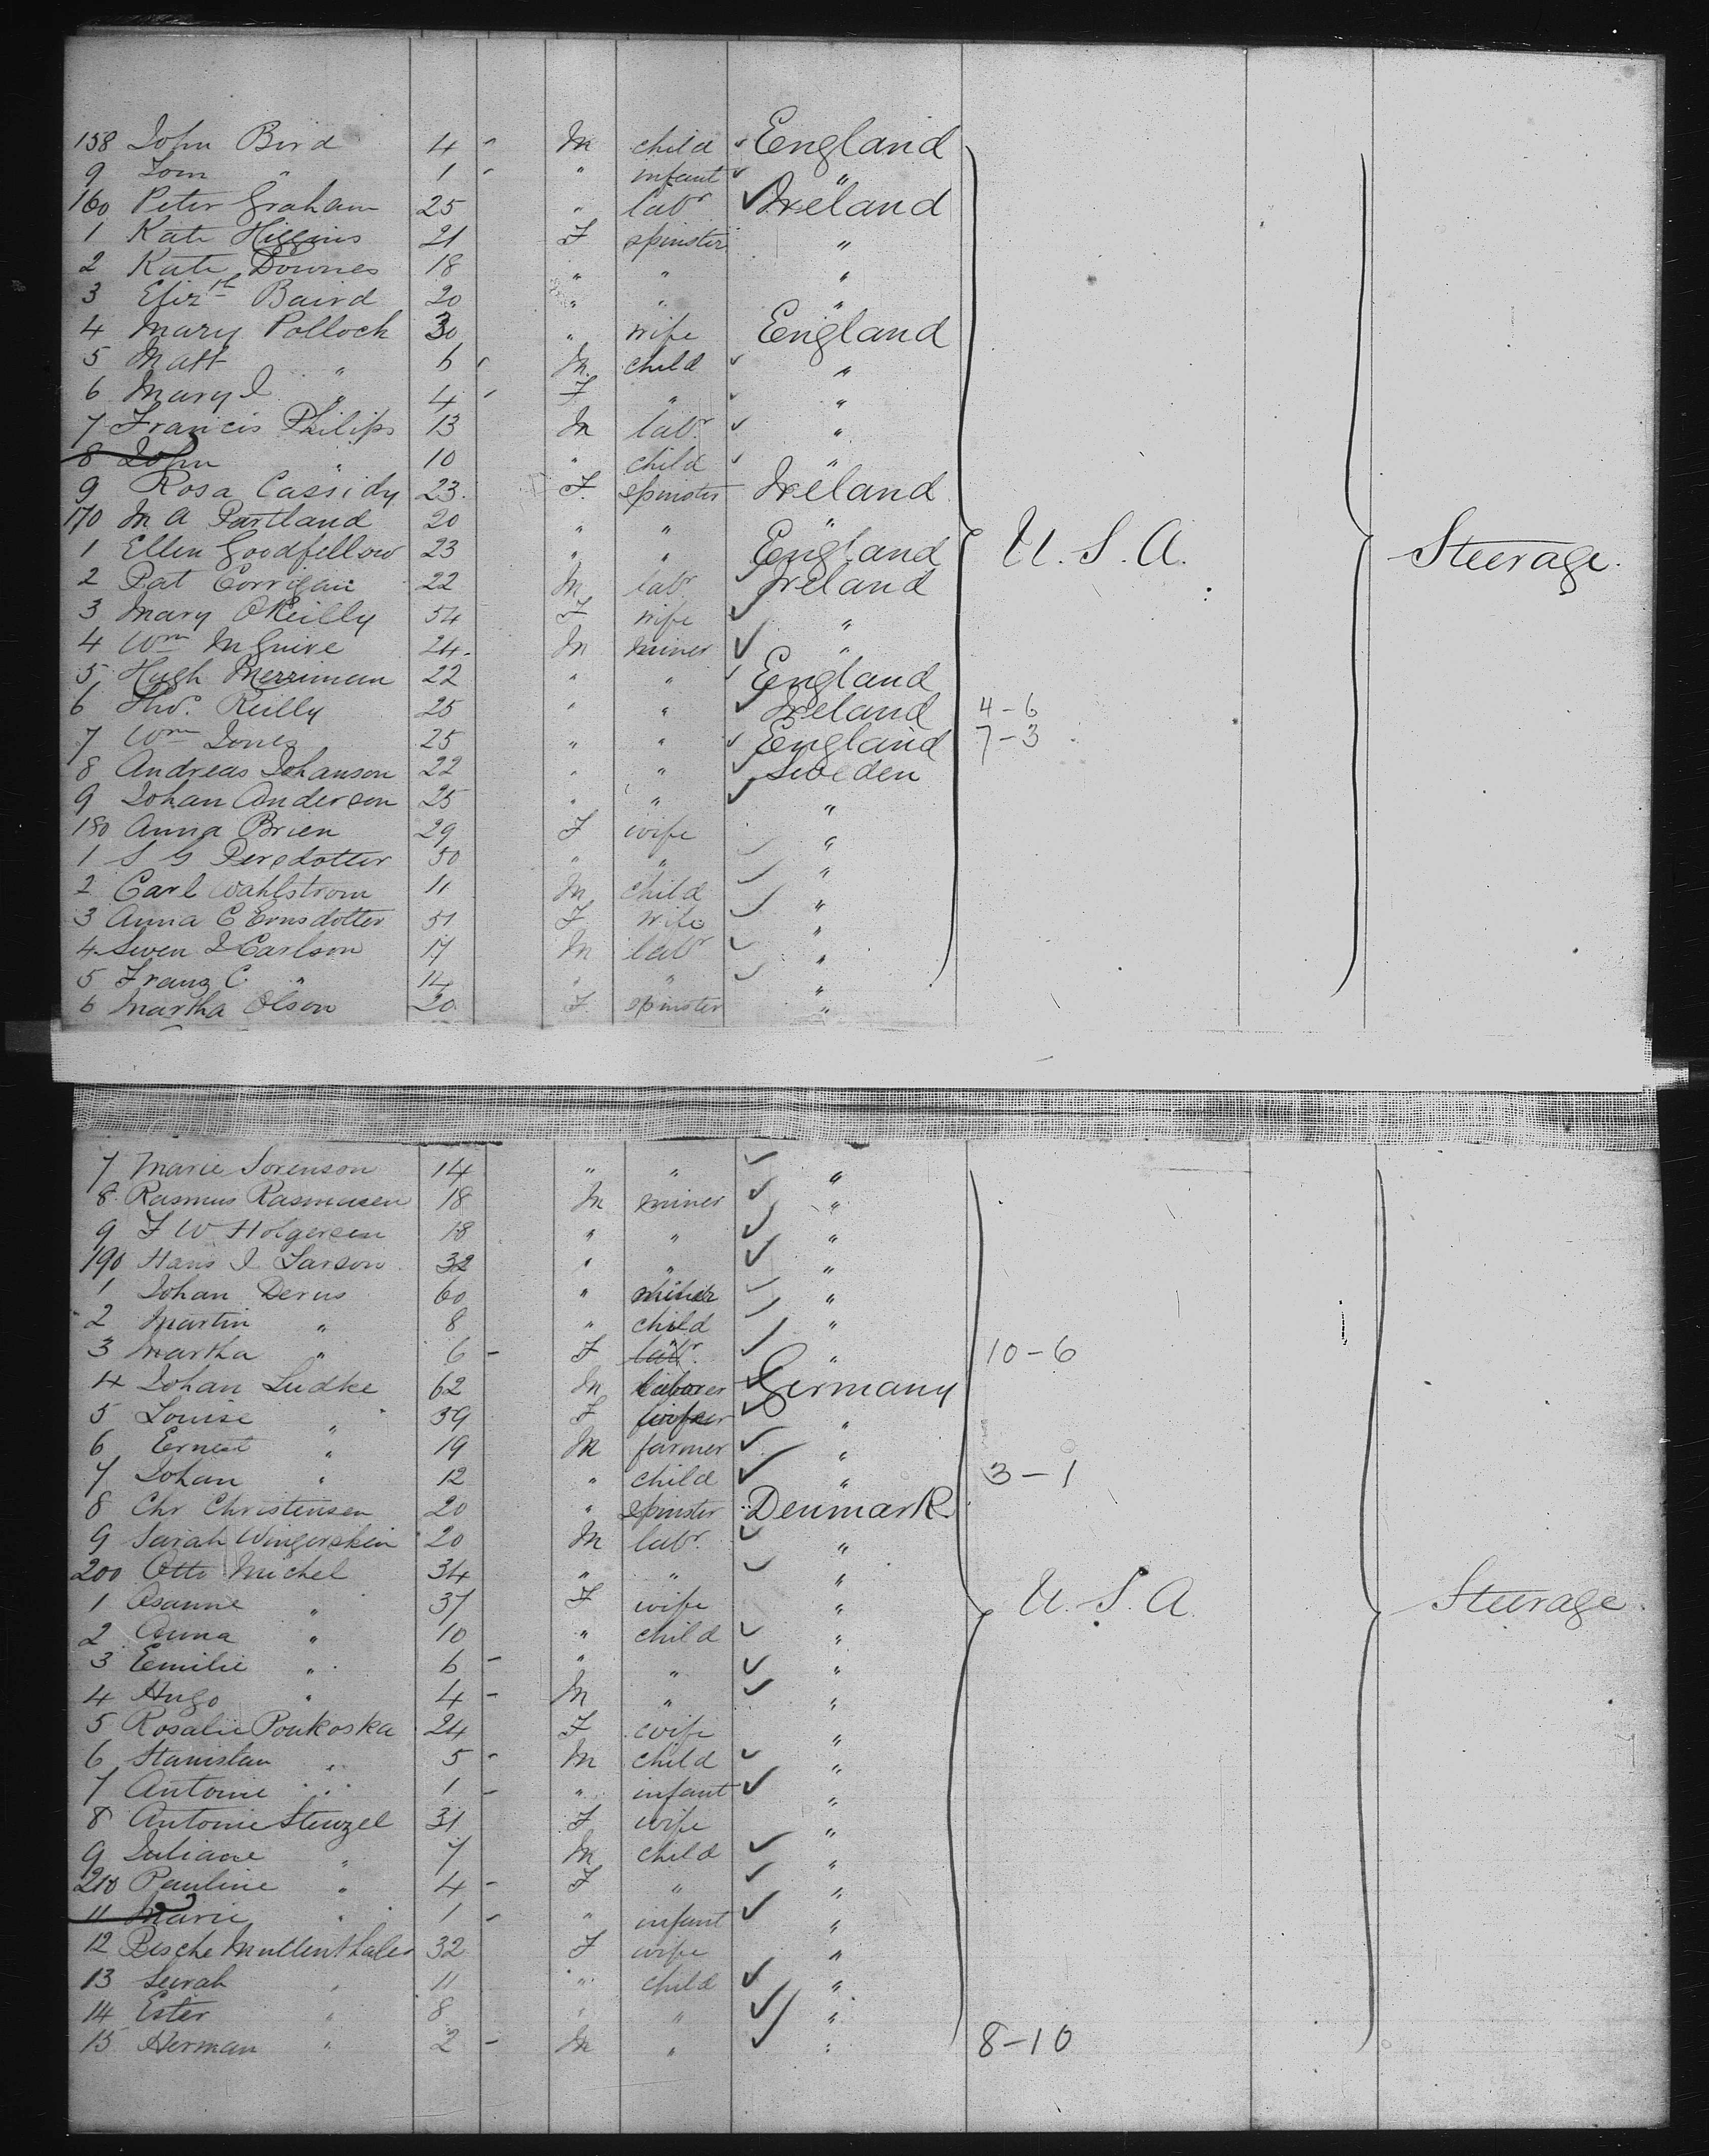 158 John Bird 4 " M child England
9 Tom " 1 " " infant "
160 Peter Graham 25 " labr Ireland
1 Kate Higgins 21 F spinster "
2 Kate Downes 18 " " "
3 Elizth Baird 20 " " "
4 Mary Pollock 30 " wife England
5 Matt " 6 M child "
6 Mary J " 4 F " "
7 Francis Philips 13 M labr "
8 John " 10 " child "
9 Rosa Cassidy 23 F. spinster Ireland
170 M A Partland 20 " " "
1 Ellen Goodfellow 23 " " England U. S. A. Steerage.
2 Pat Corrigan 22 M labr Ireland
3 Mary OReilly 54 F wife "
4 Wm McGuire 24 M miner "
5 Hugh Merriman 22 " " England
6 Tho. Reilly 25 " " Ireland 4-6
7 Wm Jones 25 " " England 7-3
8 Andreas Johanson 22 " " Sweden
9 Johan Anderson 25 " " "
180 Anna Brien 29 F wife "
1 S G Persdotter 50 " " "
2 Carl Wahlstrom 11 M child "
3 Anna C Ernsdotter 51 F wife "
4 Swen J Carlson 17 M labr "
5 Franz C. " 14 " " "
6 Martha Olson 20 F spinster "
7 Marie Sorenson 14 " " "
8 Rasmus Rasmusen 18 M miner "
9 F W Holgersen 18 " " "
190 Hans J Larson 32 " " "
1 Johan Derus 60 " miner "
2 Martin " 8 " child "
3 Martha " 6 - F labr. " 10-6
4 Johan Ludke 62 M laborer Germany
5 Louise " 39 F wife "
6 Ernest " 19 M farmer "
7 Johan " 12 " child " 3-1
8 Chr Christensen 20 " spinster Denmark
9 Sarah Wingerskin 20 M labr. "
200 Otto Michel 34 " " "
1 Osanne " 37 F wife " U. S. A. Steerage.
2 Anna " 10 " child "
3 Emilie " 6 - " " "
4 Hugo " 4 - M " "
5 Rosalie Ponkoska 24 F wife "
6 Stanislau " 5 - M child "
7 Antonie " 1 - " infant "
8 Antonie Stenzel 31 F wife "
9 Juliane " 7 M child "
210 Pauline " 4 - F " "
11 Marie " 1 - " infant "
12 Pesche Mullenthaler 32 F wife "
13 Surah " 11 " child "
14 Ester " 8 " " "
15 Herman " 2 - M " " 8-10